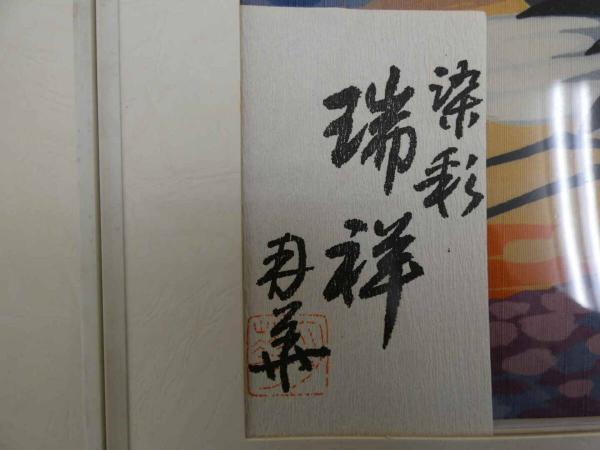 染彩
瑞祥
月華